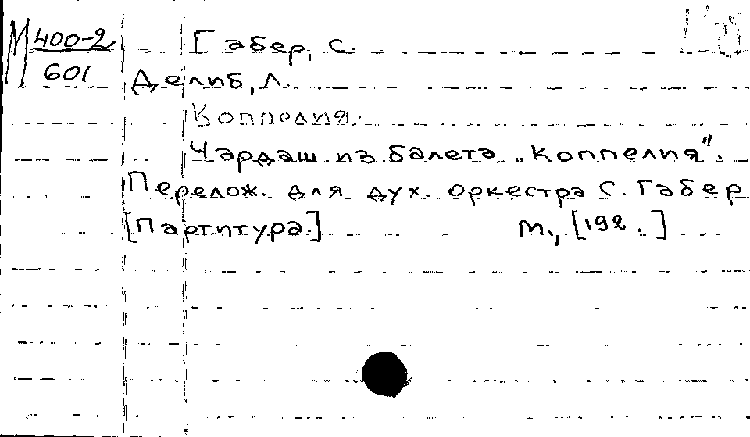 М 400-2
601
Габер, С.
Делиб, Л.
Коппелия.
Чардаш из балета „Коппелия".
Перелож. для дух. оркестра С. Габер
[Партитура.] М., [192 . ]